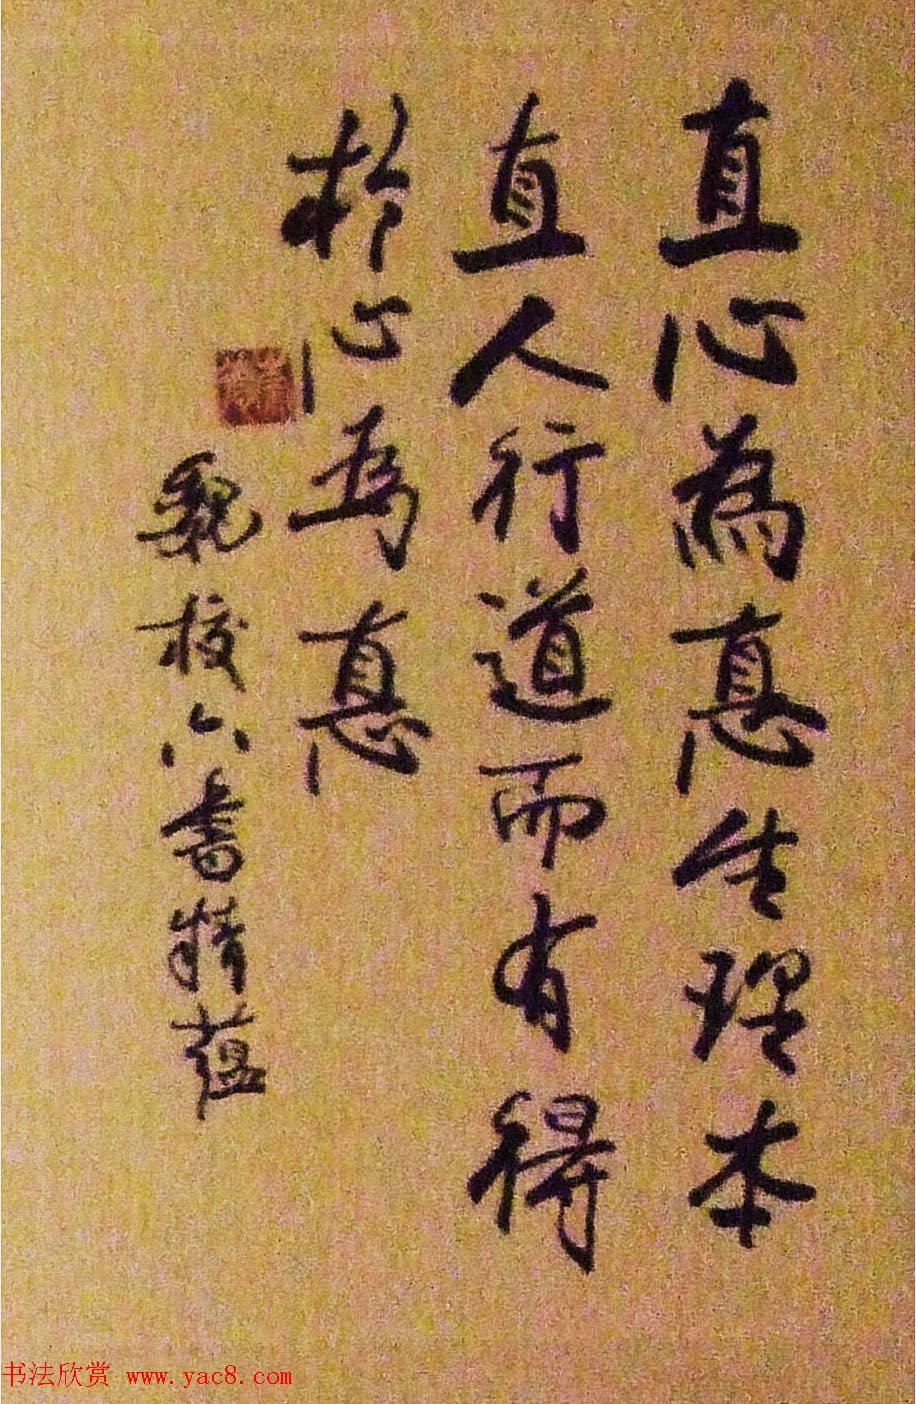 直心為悳生理本
直人行道而有得
於心為悳
魏校六書精蘊
书法欣赏 www.yac8.com